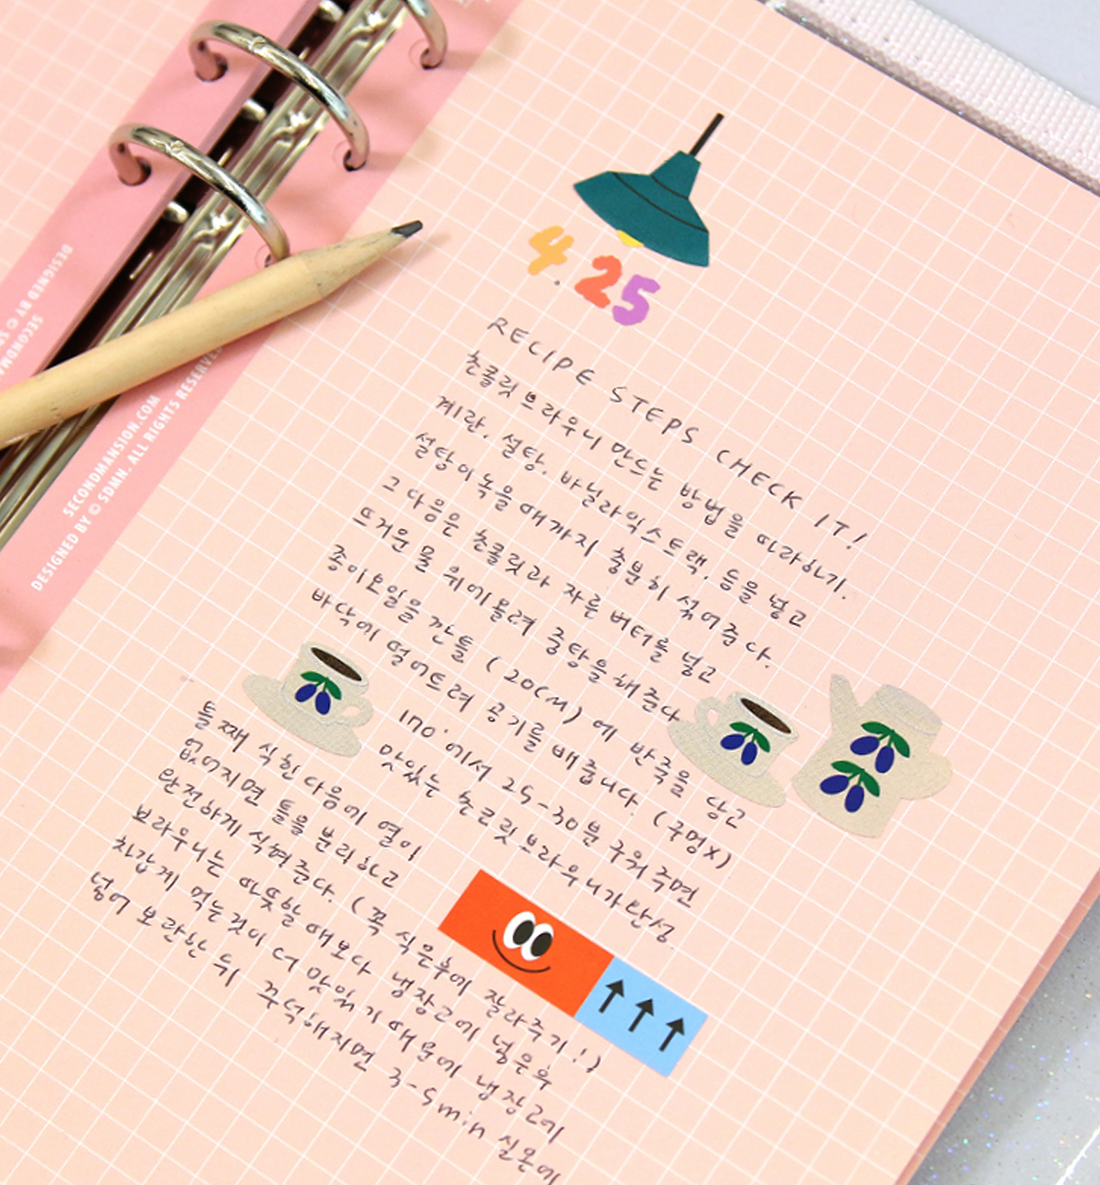 4.25
RECIPE STEPS CHECK IT!
초콜릿 브라우니 만드는 방법을 따라하기.
계란, 설탕, 바닐라익스트랙, 등을 넣고
설탕이 녹을 때까지 충분히 섞어준다.
그 다음은 초콜릿과 자른 버터를 넣고
뜨거운 물 위에 올려 중탕을 해준다
종이호일을 깐 틀 (20cm) 에 반죽을 담고
바닥에 떨어트려 공기를 빼줍니다. (구멍X)
170°에서 25-30분 구워주면
맛있는 초코릿브라우니가 완성.
틀째 식힌 다음에 열이
없어지면 틀을 분리하고
완전하게 식혀준다. (꼭 식은후에 잘라주기!)
브라우니는 따뜻할 때보다 냉장고에 넣은후
차갑게 먹는것이 더 맛있기 때문에 냉장고에
넣어 보관한 뒤 꾸덕해지면 3-5min 실온에
SECONDMANSION.COM
DESIGNED BY © SDMN. ALL RIGHTS RESERVE
DESIGNED BY ©